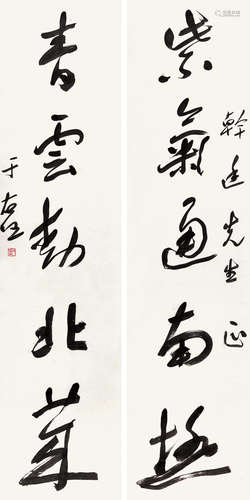 幹廷先生正
紫氣通南極
青雲動北萊
于右任